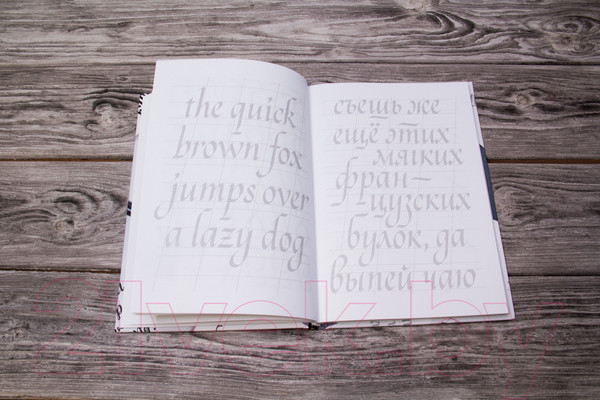 the quick
brown fox
jumps over
a lazy dog
съешь же
ещё этих
мягких
фран–
цузских
булок, да
выпей чаю
21vek.by